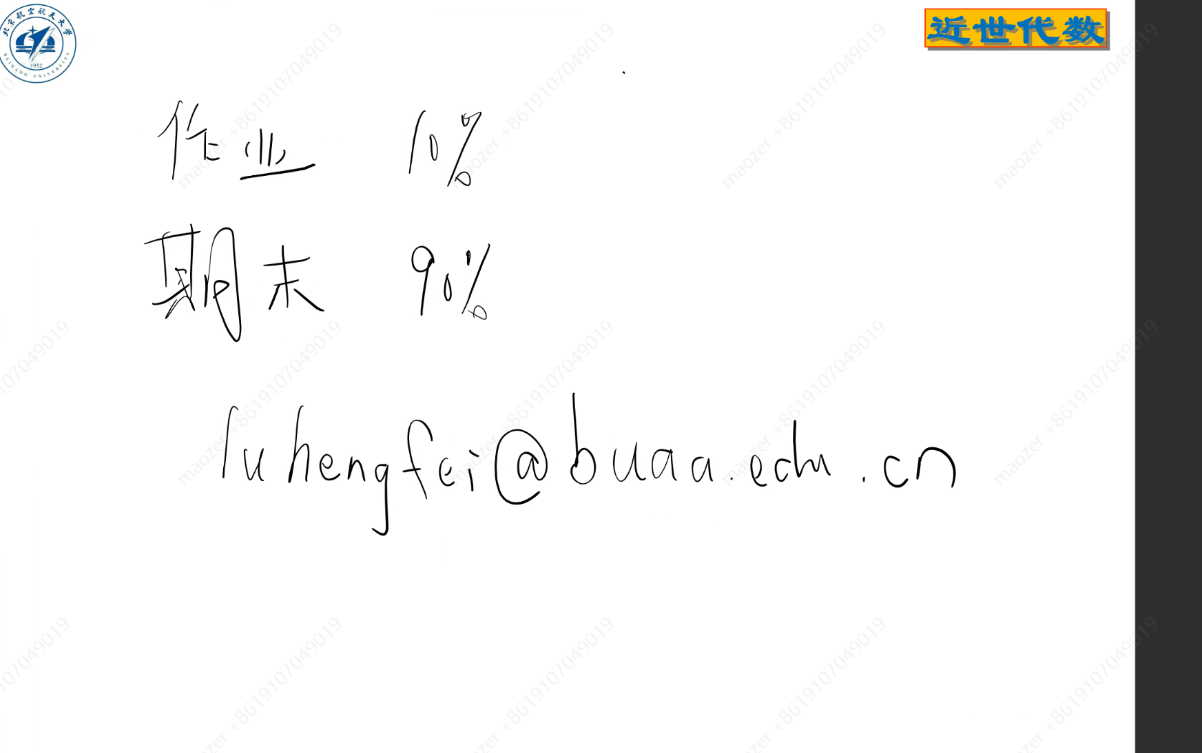 北京航空航天大学
BEIHANG UNIVERSITY
1952
近世代数
作业 10%
期末 90%
luhengfei@buaa.edu.cn
maozer +8619107049019